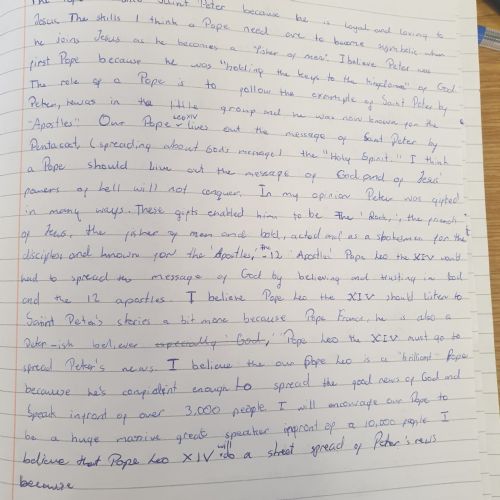 Saint Peter because he is loyal and loving to
Jesus. The skills I think a Pope need are to become symbolic when
he joins Jesus as he becomes a "fisher of men". I believe Peter was
first Pope because he was "holding the keys to the kingdom" of God.
The role of a Pope is to follow the example of Saint Peter by
Peter, was in the little group and he was now known for the
"Apostles" Our Pope Leo XIV lives out the message of Saint Peter by
Pentacost, (spreading about Gods message) the "Holy Spirit." I think
a Pope should live out the message of God and of Jesus'
powers of hell will not conquer. In my opinion Peter was gifted
in many ways. These gifts enabled him to be The 'Rock,', the friends
of Jesus, the fisher of men and bold, acted as a spokesman for the
disciples and known for the 'Apostles, the 12 Apostles' Pope Leo the XIV would
had to spread the message of God by believing and trusting in God
and the 12 apostles. I believe Pope Leo the XIV should listen to
Saint Peter's stories a bit more because Pope Francis, he is also a
Peter-ish believer especially 'God,' Pope Leo the XIV must go to
spread Peter's news. I believe the our Pope Leo is a 'brilliant' Pope
because he's confident enough to spread the good news of God and
Speak infront of over 3,000 people. I will encourage our Pope to
be a huge massive great speaker infront of a 10,000 people I
believe that Pope Leo XIV will do a street spread of Peter's news
because